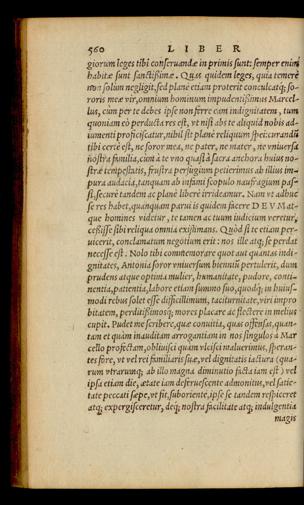 560 LIBER
giorum leges tibi conseruandæ in primis sunt: semper enim
habitæ sunt sanctißimæ. Quas quidem leges, quia temerè
non solùm negligit, sed planè etiam proterit conculcatq́; so-
roris meæ vir, omnium hominum impudentißimus Marcel-
lus, cùm per te debes ipse non ferre eam indignitatem, tum
quoniam eò perducta res est, vt nisi abs te aliquid nobis ad-
iumenti proficiscatur, nihil sit planè reliquum spei: curandũ
tibi certè est, ne soror mea, ne pater, ne mater, ne vniuersa
nostra familia, cùm à te vno quasi à sacra anchora huius no-
stræ tempestatis, frustra perfugium petierimus ab illius im-
pura audacia, tanquam ab infami scopulo naufragium pas-
si. securè tandem ac planè liberè irrideamur. Nam vt adhuc
se res habet, quanquam parui is quidem facere DEVM at-
que homines videtur, te tamen ac tuum iudicium veretur,
ceßisse sibi reliqua omnia existimans. Quòd si te etiam per-
uicerit, conclamatum negotium erit: nos ille atq; se perdat
necesse est. Nolo tibi commemorare quot aut quantas indi-
gnitates, Antonia soror vniuersum biennij pertulerit, dum
prudens atque optima mulier, humanitate, pudore, conti-
nentia, patientia, labore etiam summo suo, quodq́; in huius-
modi rebus solet esse difficillimum, taciturnitate, viri impro
bitatem, perditißimosq́; mores placare ac flectere in melius
cupit. Pudet me scribere, quæ conuitia, quas offensas, quan-
tam et quàm inauditam arrogantiam in nos singulos à Mar
cello profectam, obliuisci quàm vlcisci maluerimus, speran-
tes fore, vt vel rei familiaris suæ, vel dignitatis iactura (qua-
rum vtrarumq; ab illo magna diminutio facta iam est) vel
ipsa etiam die, ætate iam deferuescente admonitus, vel satie-
tate peccati sæpe, vt fit, suboriente, ipse se tandem respiceret
atq; expergisceretur, deq́; nostra facilitate atq; indulgentia
magis